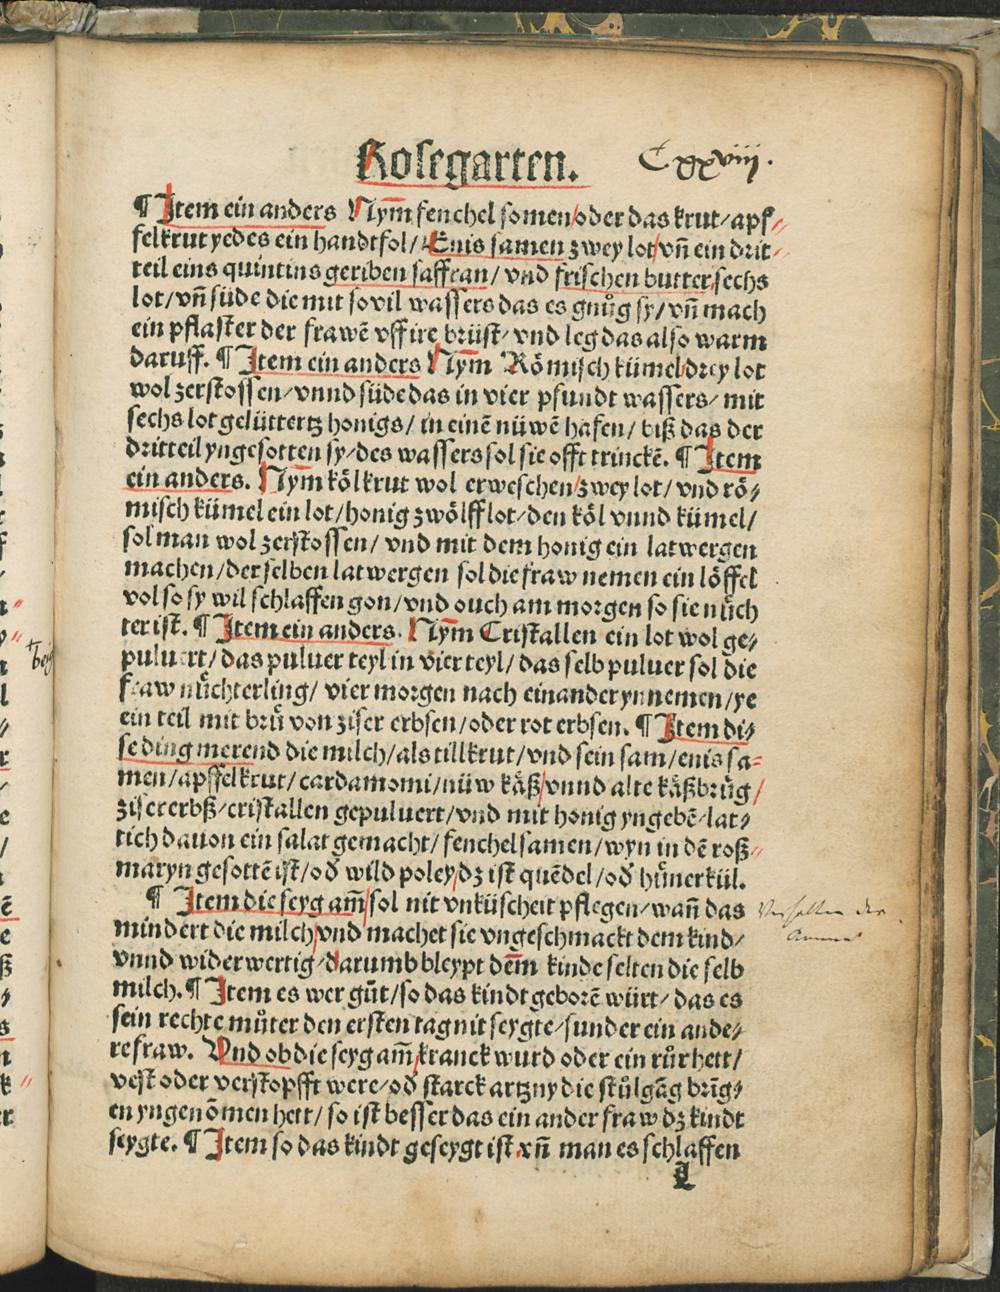 Rosegarten. Cxxviij.
¶ Item ein anders Nym̄ fenchel somen/oder das krut/apf⸗
felkrut yedes ein handtfol/Enis samen zwey lot/vn̄ ein drit⸗
teil eins quintins geriben saffran/vnd frischen butter/sechs
lot/vn̄ süde die mit sovil wassers das es gnůg sy/vn̄ mach
ein pflaster der frawē vff ire brüst/vnd leg das also warm
daruff. ¶ Item ein anders Nym̄ Römisch kümel/drey lot
wol zerstossen/vnnd süde das in vier pfundt wassers/mit
sechs lot gelüttertz honigs/in einē nüwē hafen/biß das der
dritteil yngesotten sy/des wassers sol sie offt trinckē. ¶ Item
ein anders. Nym̄ kölkrut wol erweschen/zwey lot/vnd rö⸗
misch kümel ein lot/honig zwölff lot/den köl vnnd kümel/
sol man wol zerstossen/vnd mit dem honig ein latwergen
machen/der selben latwergen sol die fraw nemen ein löffel
vol so sy wil schlaffen gon/vnd ouch am morgen so sie nůch
ter ist. ¶ Item ein anders. Nym̄ Cristallen ein lot wol ge⸗
puluert/das puluer teyl in vier teyl/das selb puluer sol die
fraw nůchterling/vier morgen nach einander ynnemen/ye
ein teil mit brů von ziser erbsen/oder rot erbsen. ¶ Item di⸗
se ding merend die milch/als tillkrut/vnd sein sam/enis sa⸗
men/apffelkrut/cardamomi/nüw käß/vnnd alte käßbrůg/
zisererbß/cristallen gepuluert/vnd mit honig yngebē/lat⸗
tich dauon ein salat gemacht/fenchel samen/wyn in dē roß⸗
maryn gesottē ist/od̓ wild poley/dz ist quēdel/od̓ hůnerkül.
¶ Item die seyg am̄/sol nit vnküscheit pflegen/wan̄ das
mindert die milch/vnd machet sie vngeschmackt dem kind/
vnnd widerwertig/darumb bleypt dem̄ kinde selten die selb
milch. ¶ Item es wer gůt/so das kindt geborē würt/das es
sein rechte můter den ersten tag nit seygte/sunder ein ande⸗
re fraw. Vnd ob die seyg am̄/kranck wurd oder ein růr hett/
vest oder verstopfft were/od̓ starck artzny die stůlgāg brīg⸗
en yngenōmen hett/so ist besser das ein ander fraw dz kindt
seygte. ¶ Item so das kindt geseygt ist vn̄ man es schlaffen